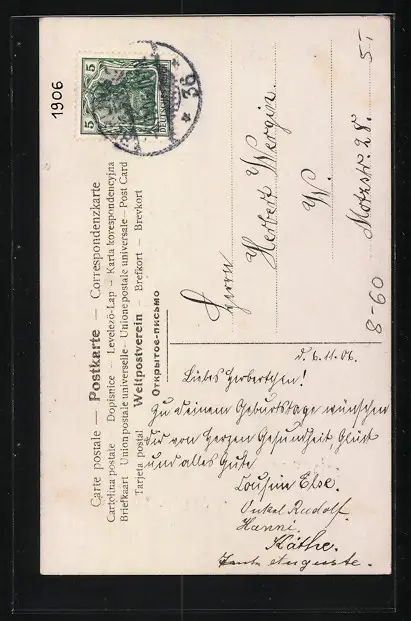 1906
5
5
DEUTSCHES REICH
* 36 *
Carte postale — Postkarte — Correspondenzkarte
Cartolina postale — Dopisnice — Levelező-Lap — Karta korespondencyjna
Briefkaart — Union postale universelle — Unione postale universale — Post Card
Tarjeta postal — Weltpostverein — Brefkort — Brevkort
Открытое-письмо
Herrn
Herbert Wergin.
W.
Motzstr. 28.
5T
8-60
d. 6.11.06.
Liebes Herbertchen!
Zu deinem Geburtstage wünschen
Dir von Herzen Gesundheit, Glück
und alles Gute
Cousin Else.
Onkel Rudolf.
Hanni.
Käthe.
Tante Auguste.